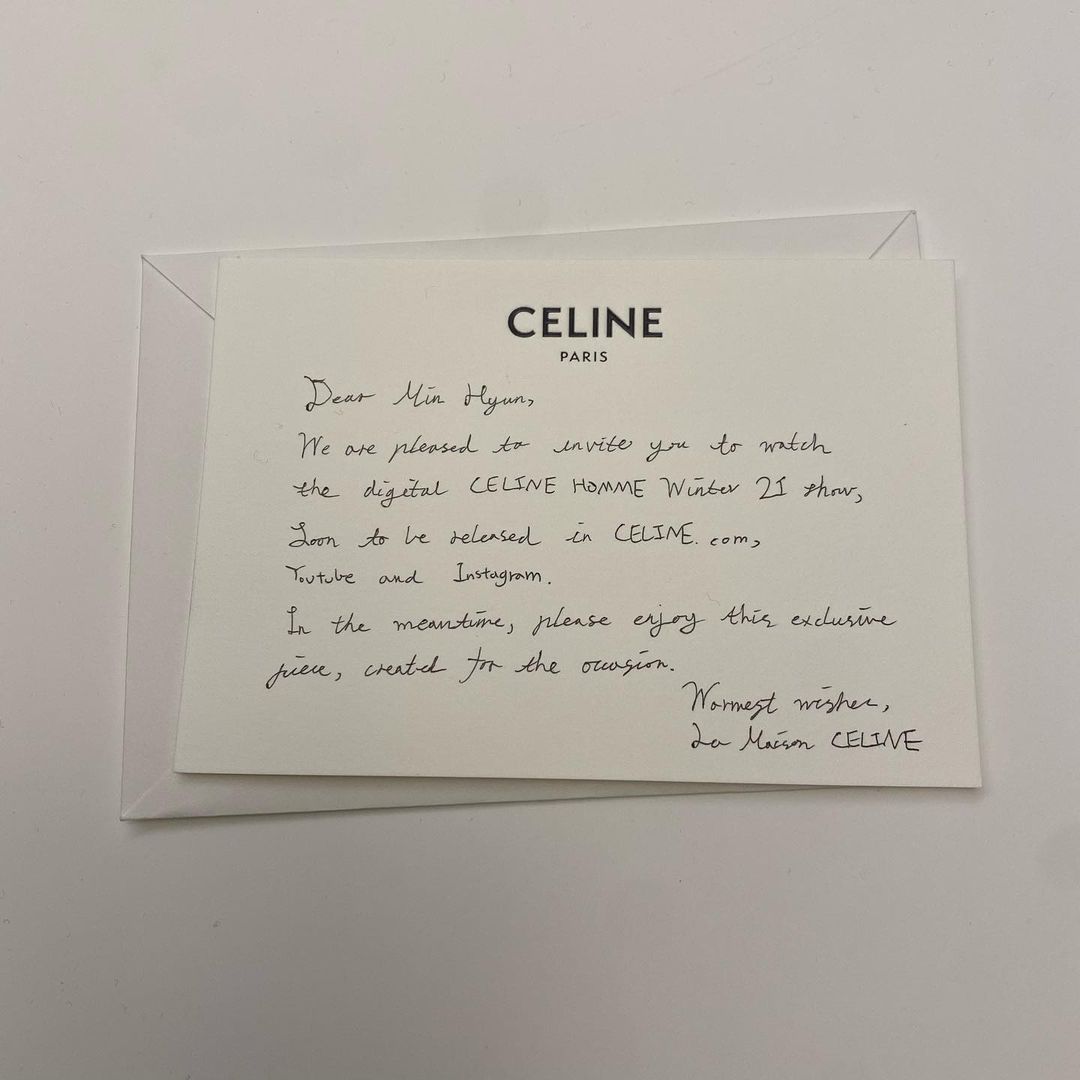 CELINE
PARIS
Dear Min Hyun,
We are pleased to invite you to watch
the digital CELINE HOMME Winter 21 show,
Soon to be released in CELINE.com,
Youtube and Instagram.
In the meantime, please enjoy this exclusive
piece, created for the occasion.
Warmest wishes,
La Maison CELINE